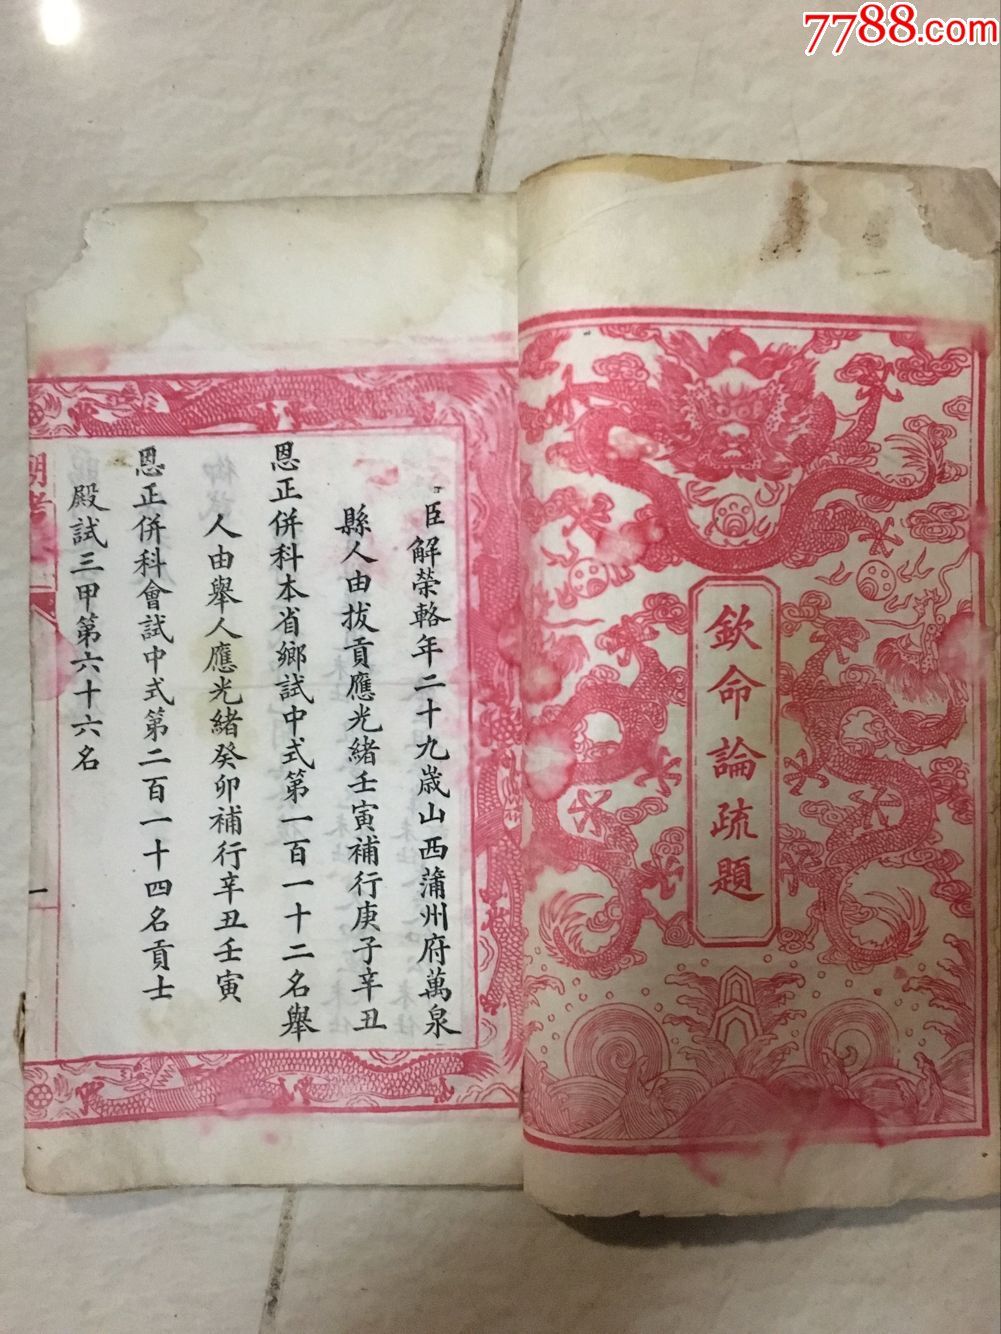 7788.com
欽命論疏題
臣解榮輅年二十九歲山西蒲州府萬泉
縣人由拔貢應光緒壬寅補行庚子辛丑
恩正併科本省鄉試中式第一百一十二名舉
人由舉人應光緒癸卯補行辛丑壬寅
恩正併科會試中式第二百一十四名貢士
殿試三甲第六十六名
朝考
一